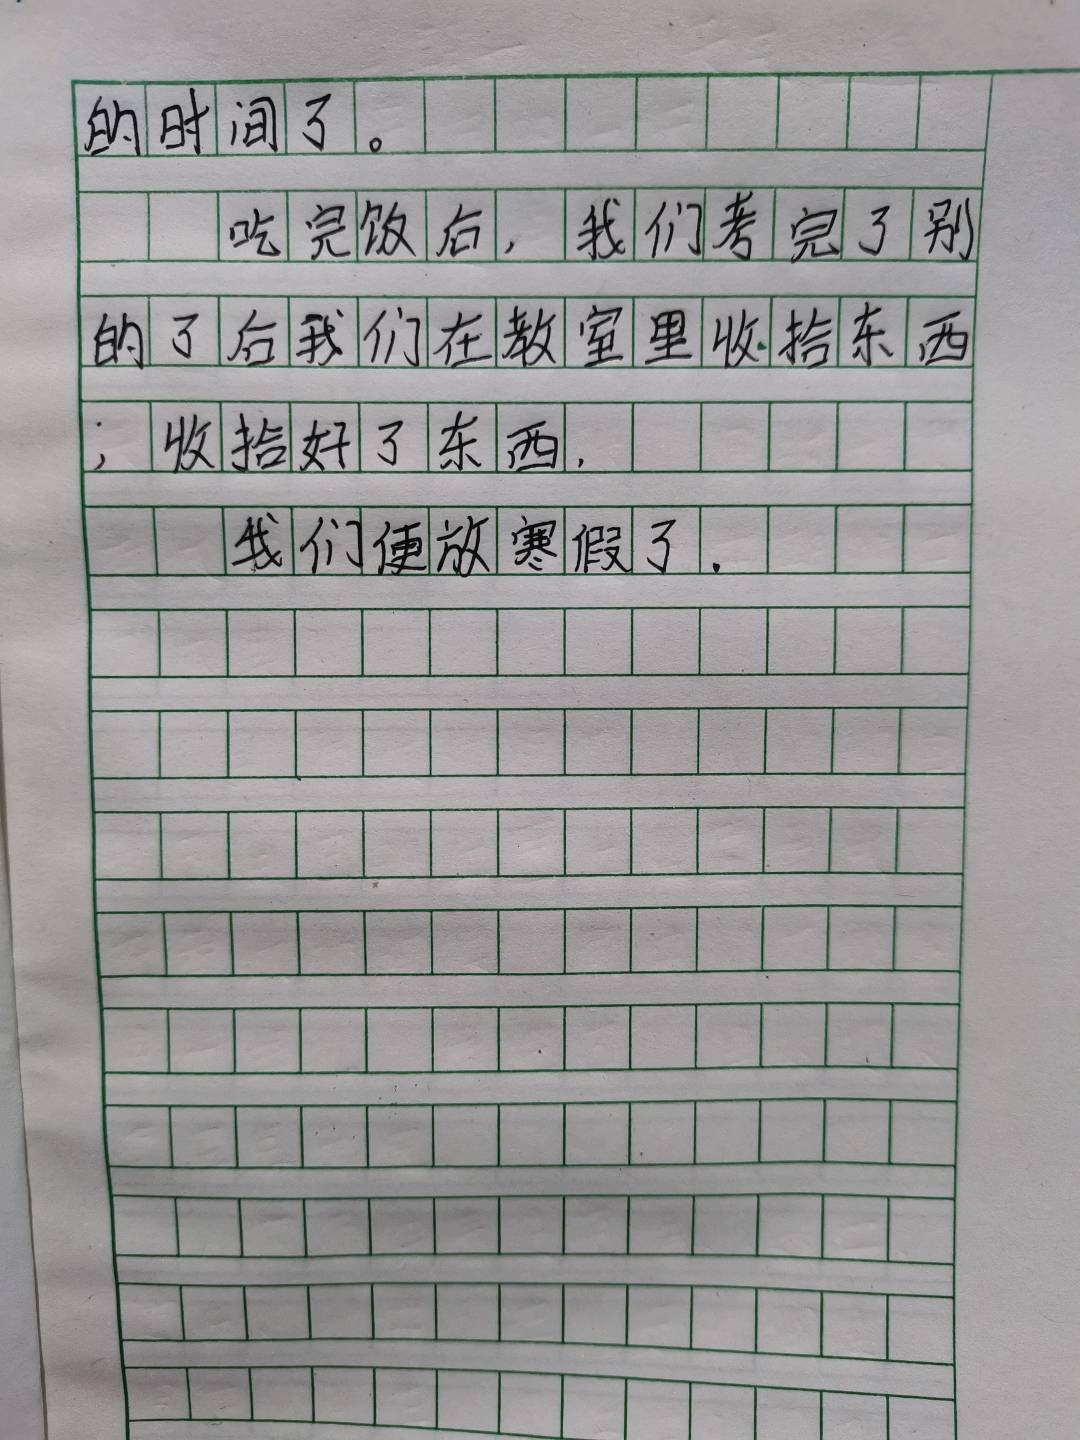 的时间了。
吃完饭后，我们考完了别
的了后我们在教室里收拾东西
；收拾好了东西，
我们便放寒假了．